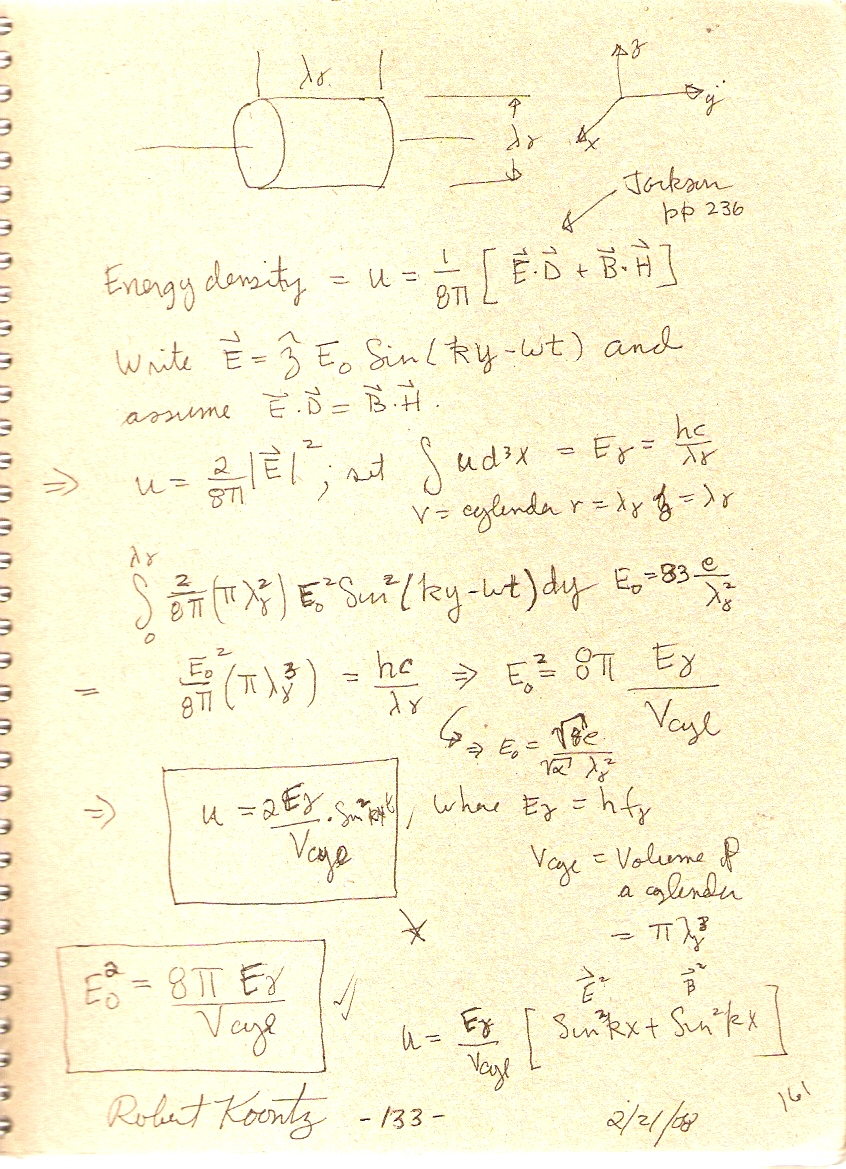 λγ
z
y
x
λγ
Jackson
pp 236
Energy density = u = 1/8π [ E⃗·D⃗ + B⃗·H⃗ ]
Write E⃗ = ẑ E₀ Sin(ky-ωt) and
assume E⃗·D⃗ = B⃗·H⃗.
⇒ u = 2/8π |E⃗|²; set ∫ u d³x = Eγ = hc/λγ
V = cylender r = λγ z = λγ
∫₀^λγ 2/8π (πλγ²) E₀² Sin²(ky-ωt) dy E₀ = 83 e/λγ²
= E₀²/8π (πλγ³) = hc/λγ ⇒ E₀² = 8π Eγ/Vcyl
⇒ E₀ = √8 e/√α λγ²
⇒ u = 2 Eγ/Vcyl · Sin²kx, where Eγ = hfγ
Vcyl = Volume of
a cylender
= πλγ³
E₀² = 8π Eγ/Vcyl ✓
E⃗² B⃗²
u = Eγ/Vcyl [ Sin²kx + Sin²kx ]
Robert Koontz -133- 2/21/08 161